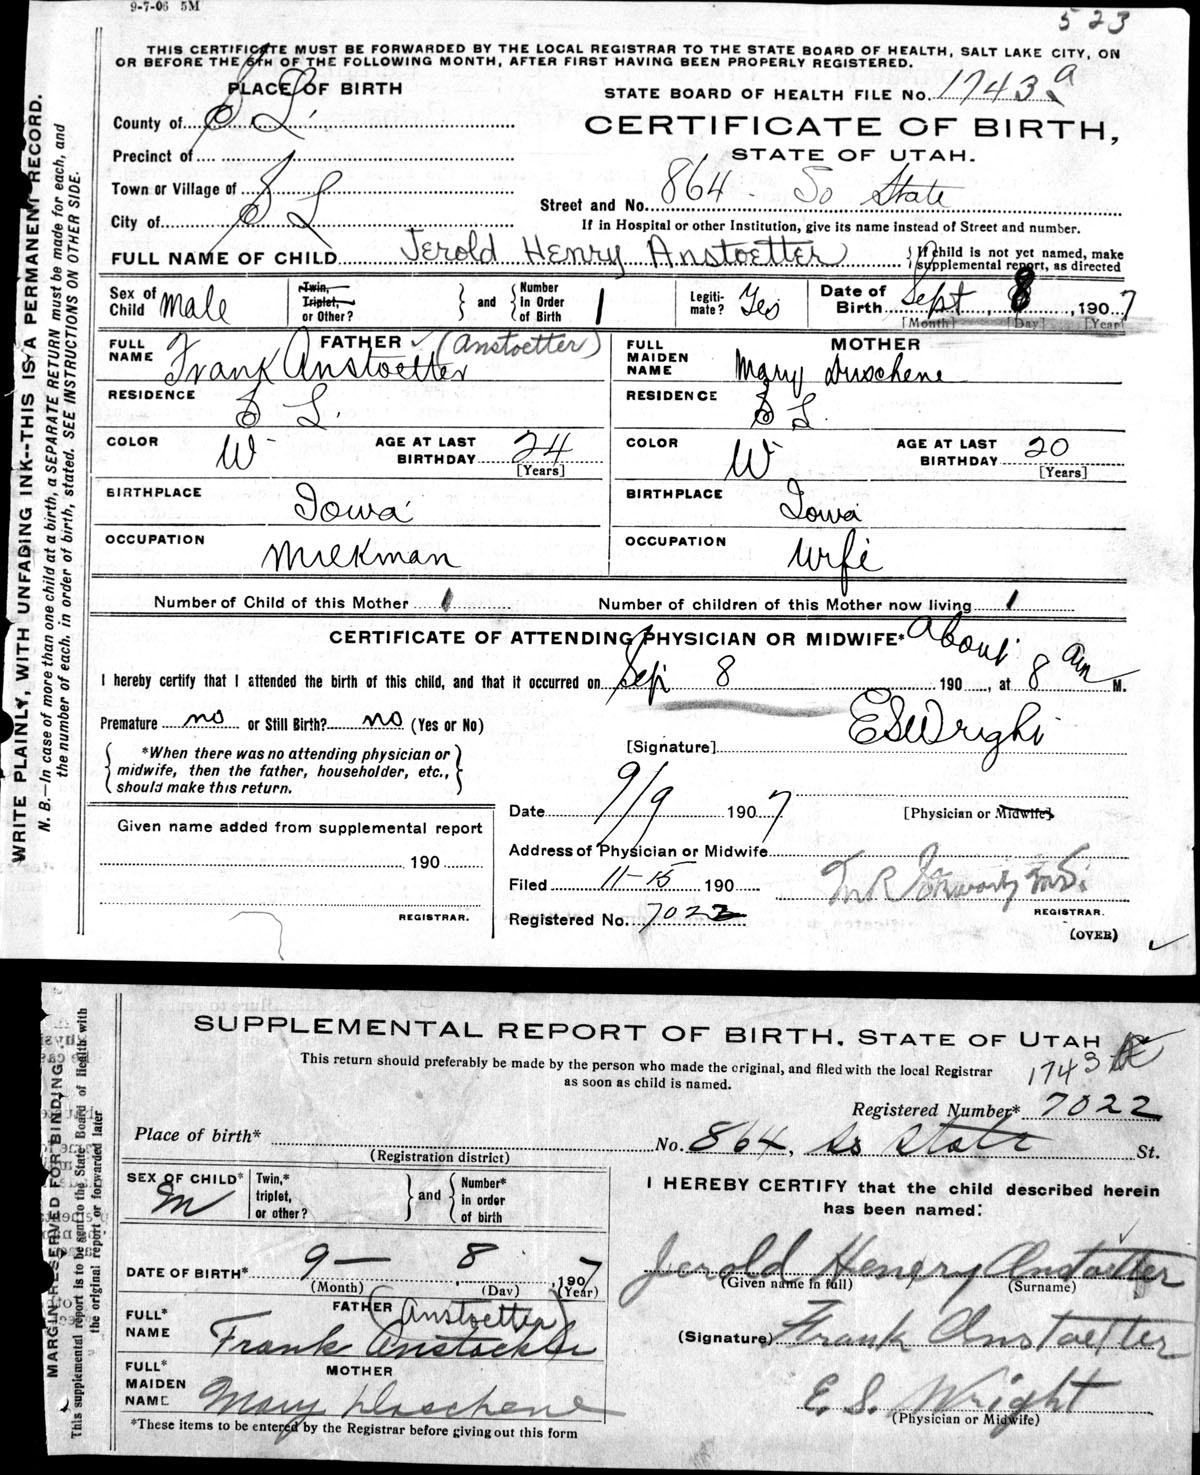 9-7-06 5M
523
THIS CERTIFICATE MUST BE FORWARDED BY THE LOCAL REGISTRAR TO THE STATE BOARD OF HEALTH, SALT LAKE CITY, ON
OR BEFORE THE 5TH OF THE FOLLOWING MONTH, AFTER FIRST HAVING BEEN PROPERLY REGISTERED.
PLACE OF BIRTH
STATE BOARD OF HEALTH FILE No. 1743 a
County of S L.
CERTIFICATE OF BIRTH,
STATE OF UTAH.
Precinct of
Town or Village of S L
Street and No. 864 So State
City of
If in Hospital or other Institution, give its name instead of Street and number.
FULL NAME OF CHILD Jerold Henry Anstoetter
{If child is not yet named, make supplemental report, as directed
Sex of Child Male
Twin, Triplet, or Other? } and { Number in Order of Birth 1
Legitimate? Yes
Date of Birth Sept 8, 1907
[Month] [Day] [Year]
FATHER
FULL NAME Frank Anstoetter (Anstoetter)
MOTHER
FULL MAIDEN NAME Mary Duschene
RESIDENCE S L.
RESIDENCE S L.
COLOR W
AGE AT LAST BIRTHDAY 24 [Years]
COLOR W
AGE AT LAST BIRTHDAY 20 [Years]
BIRTHPLACE Iowa
BIRTHPLACE Iowa
OCCUPATION Milkman
OCCUPATION Wife
Number of Child of this Mother 1
Number of children of this Mother now living 1
CERTIFICATE OF ATTENDING PHYSICIAN OR MIDWIFE*
I hereby certify that I attended the birth of this child, and that it occurred on Sep 8 190 , at About 8 am M.
Premature no or Still Birth? no (Yes or No)
[Signature] E S Wright
{*When there was no attending physician or midwife, then the father, householder, etc., should make this return.}
Date 9/9 1907
[Physician or Midwife]
Given name added from supplemental report
190
REGISTRAR.
Address of Physician or Midwife
Filed 11-15 190
Registered No. 7022
REGISTRAR.
(OVER)
WRITE PLAINLY, WITH UNFADING INK--THIS IS A PERMANENT RECORD.
N. B.—In case of more than one child at a birth, a SEPARATE RETURN must be made for each, and
the number of each, in order of birth, stated. SEE INSTRUCTIONS ON OTHER SIDE.
SUPPLEMENTAL REPORT OF BIRTH, STATE OF UTAH
This return should preferably be made by the person who made the original, and filed with the local Registrar
as soon as child is named.
1743
Registered Number* 7022
Place of birth* No. 864, So State St.
(Registration district)
SEX OF CHILD* M
Twin,* triplet, or other? } and { Number* in order of birth
I HEREBY CERTIFY that the child described herein
has been named:
DATE OF BIRTH* 9— 8 , 1907
(Month) (Day) (Year)
Jerold Henery Anstoetter
(Given name in full) (Surname)
FATHER
FULL* NAME Frank Anstoetter (Anstoetter)
(Signature) Frank Anstoetter
MOTHER
FULL* MAIDEN NAME Mary Duschene
E. S. Wright
(Physician or Midwife)
*These items to be entered by the Registrar before giving out this form
MARGIN RESERVED FOR BINDING
This supplemental report is to be sent to the State Board of Health with
the original report or forwarded later